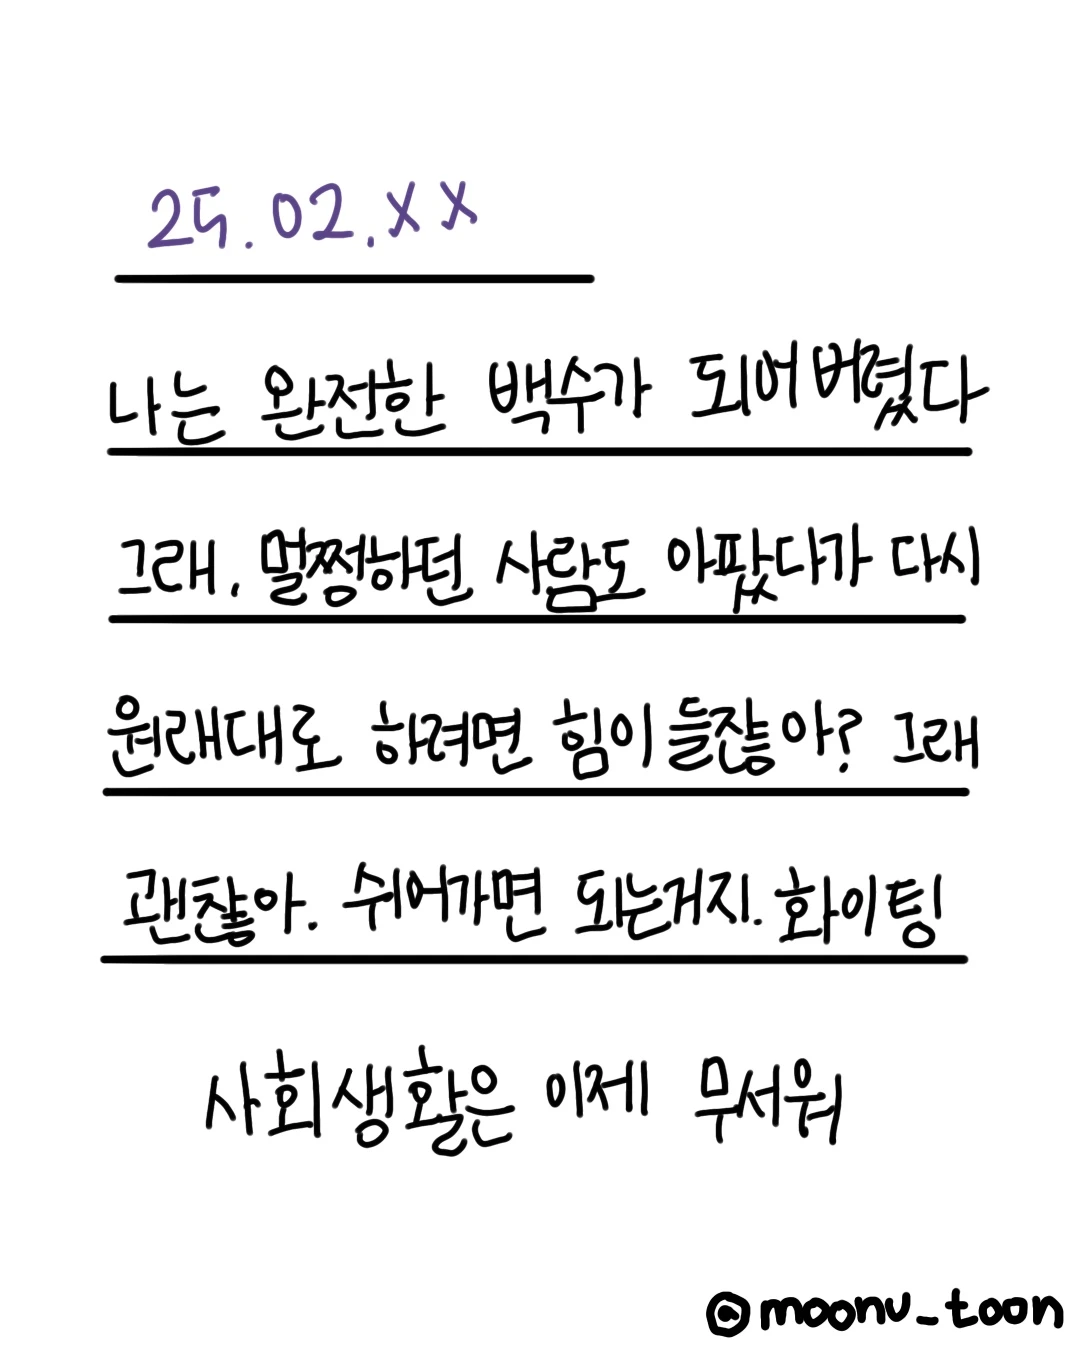 25.02.XX
나는 완전한 백수가 되어버렸다
그래, 멀쩡하던 사람도 아팠다가 다시
원래대로 하려면 힘이들잖아? 그래
괜찮아. 쉬어가면 되는거지. 화이팅
사회생활은 이제 무서워
@moonu_toon